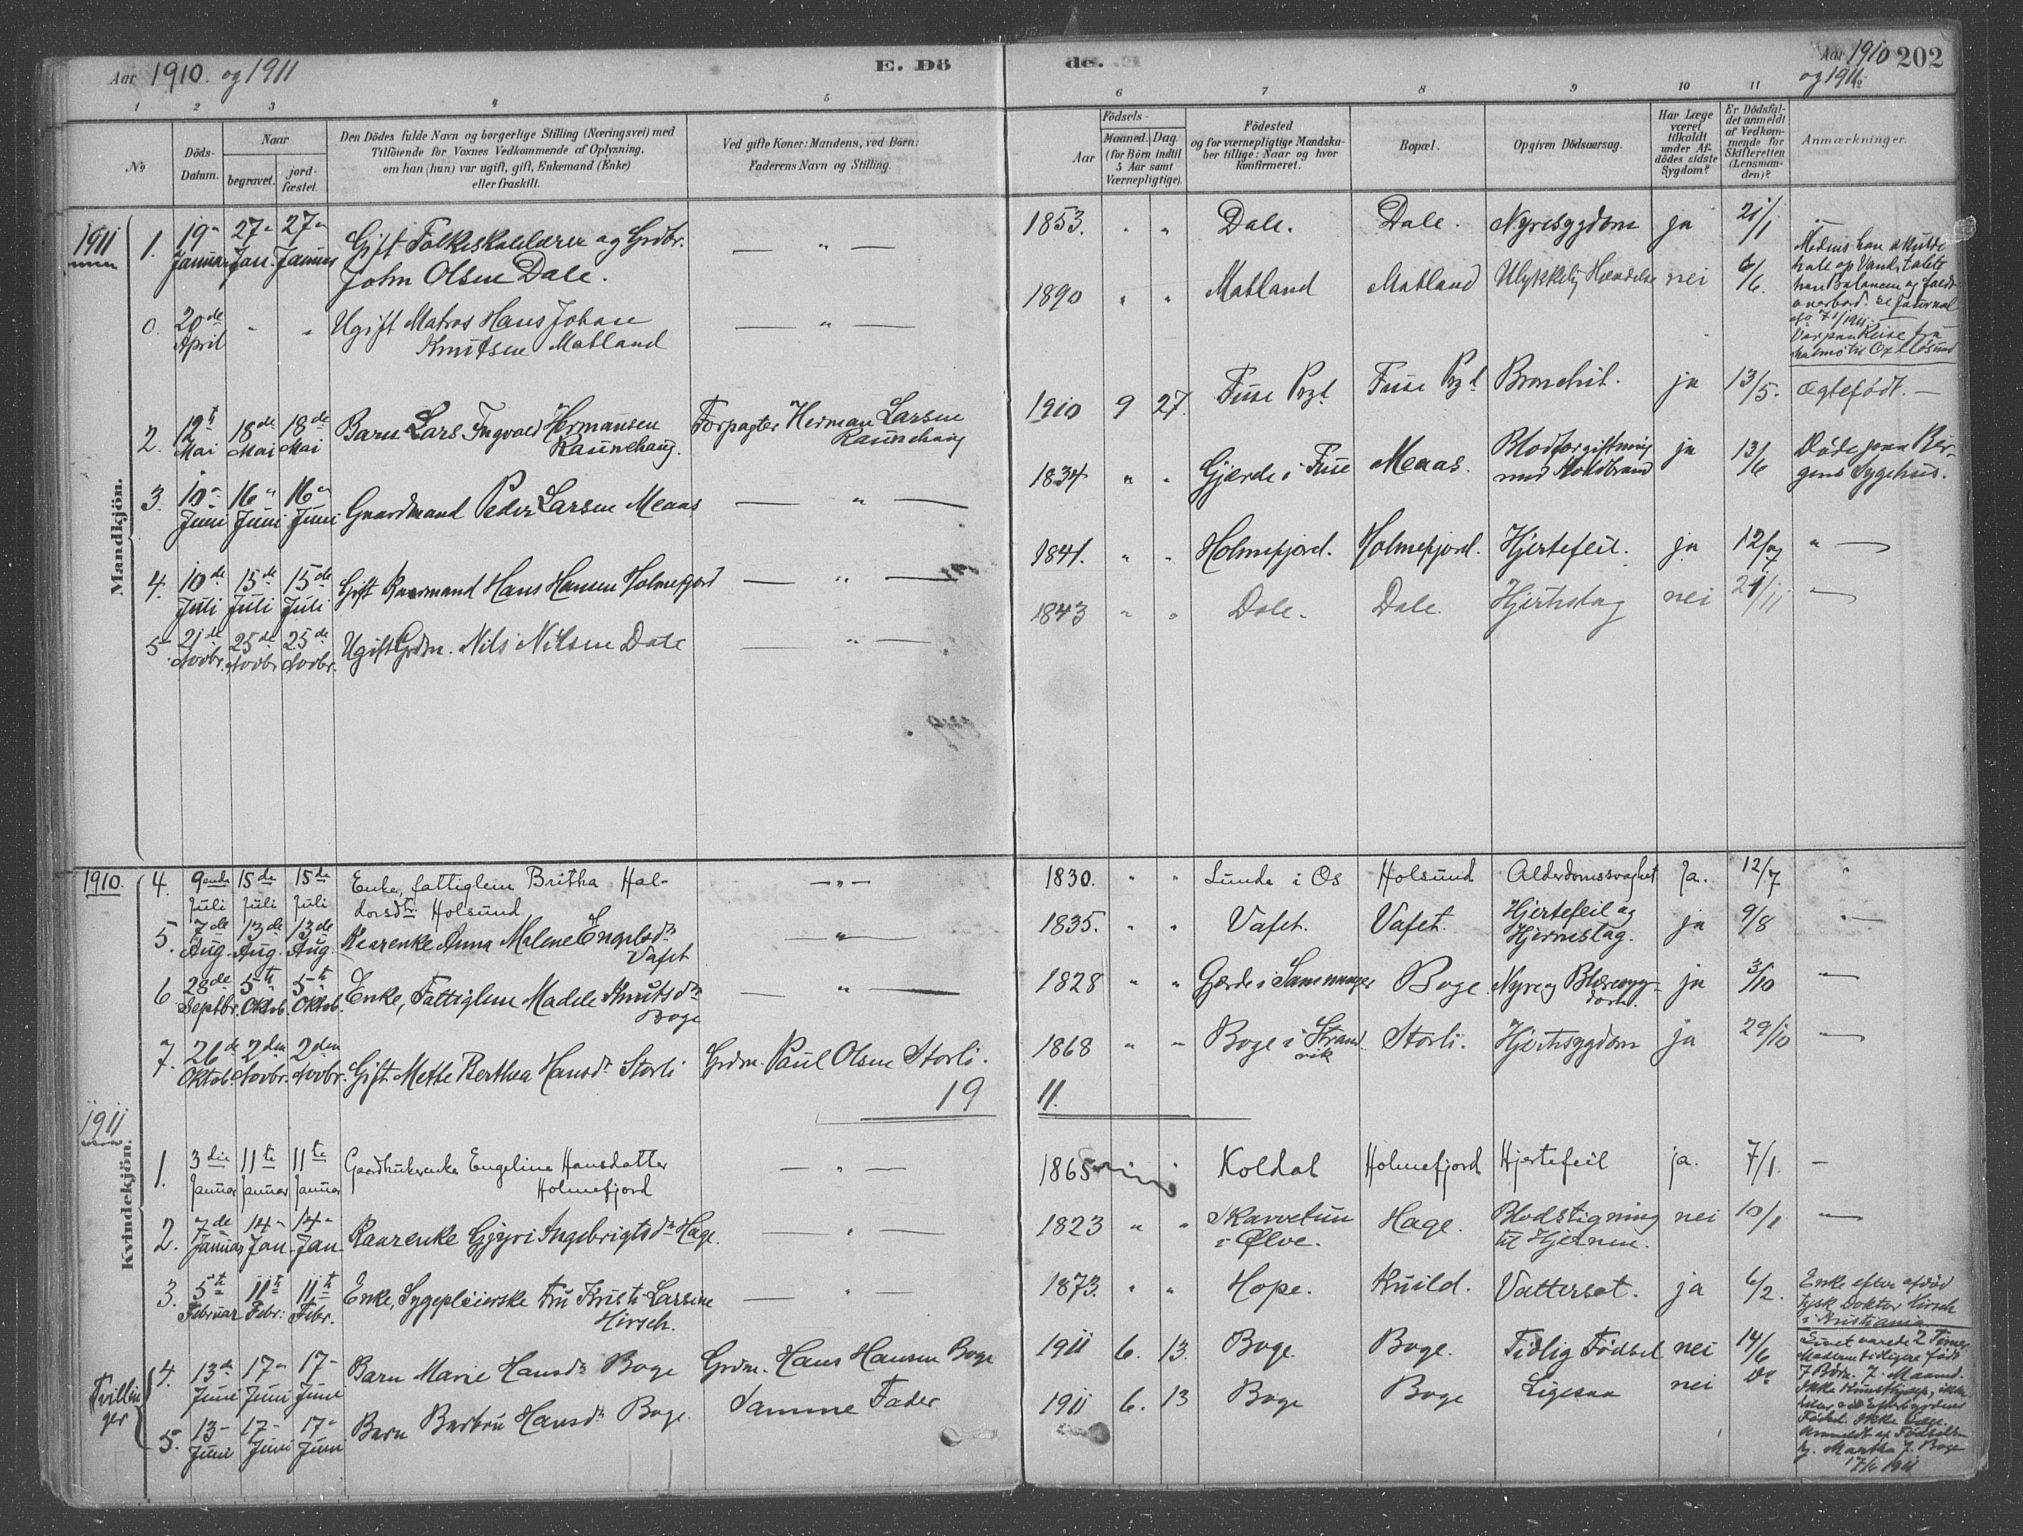 Aar 1910. og 1911
E. Dö
1 2 3 4 5
No
Döds-Datum.
Naar
begravet.
jord-fæstet.
Den Dödes fulde Navn og borgerlige Stilling (Næringsvei) med
Tilföiende for Voxnes Vedkommende af Oplysning,
om han (hun) var ugift, gift, Enkemand (Enke)
eller fraskilt.
Ved gifte Koner: Mandens, ved Börn:
Faderens Navn og Stilling.
1911
Mandkjön.
1. 19 Januar 27 Jan. 27 Januar Gift Folkeskolelærer og Grdbr.
John Olsen Dale. — " —
0. 20de April " " Ugift Matros Hans Johan
Knutsen Matland — " —
2. 12t Mai 18de Mai 18de Mai Barn Lars Ingvald Hermansen
Raunehaug. Forpagter Herman Larsen
Raunehaug
3. 10 Juni 16 Juni 16 Juni Gaardmand Peder Larsen Meaas — " —
4. 10de Juli 15de Juli 15de Juli Gift Kaarmand Hans Hansen Holmefjord — " —
5. 21de Novbr. 25de Novbr. 25de Novbr. Ugift Grdm. Nils Nilsen Dale — " —
1910.
4. 9ende Juli 15de Juli 15de Juli Enke, fattiglem Britha Hal-
dorsdtr. Holsund — " —
5. 7de Aug. 13de Aug. 13de Aug. Kaarenke Anna Malene Engelsdtr
Vafet — " —
6. 28de Septbr. 5te Oktob. 5te Oktob. Enke, Fattiglem Madele Knutsdtr
Boge — " —
7. 26de Oktob. 2den Novbr. 2den Novbr. Gift Mette Berthea Hansdtr Storli Grdm. Paul Olsen Storli.
19
1911
Kvindekjön.
1. 3die Januar 11te Januar 11te Januar Gaardbrukerenke Engeline Hansdatter
Holmefjord — " —
2. 7de Januar 14 Jan. 14 Jan. Kaarenke Gjyri Ingebrigtsdtr Hage. — " —
3. 5te Februar 11te Febr. 11te Febr. Enke, Sygepleierske fru Kristi Larsene
Hirsch. — " —
Tvillin-
ger
4. 13de Juni 17 Juni 17 Juni Barn Marie Hansdtr Boge Grdm. Hans Hansen Boge
5. 13 Juni 17 Juni 17 Juni Barn Barbru Hansdtr Boge. Samme Fader
des.
Aar 1910 202
og 1911
6 7 8 9 10 11 12
Födsels-
Aar
Maaned. Dag.
(for Börn indtil
5 Aar samt
Værnepligtige).
Födested
og for værnepligtige Mandska-
ber tillige: Naar og hvor
konfirmeret.
Bopæl.
Opgiven Dödsaarsag.
Har Læge
været
tilkaldt
under Af-
dödes sidste
Sygdom?
Er Dödsfal-
det anmeldt
af Vedkom-
mende for
Skifteretten
(Lensman-
den)?
Anmærkninger.
1853. " " Dale. Dale. Nyresygdom ja 21/1 —
1890 " " Matland Matland Ulykkelig Hændelse nei 6/6.
Medens han skulde
hale op Vand, tabte
han Balancen og faldt
overbord. se Journal
Var paa Reise fra
Halmø til Oxeløsund
1910 9 27. Fuse Prgd Fuse Prgd Bronchit. ja 13/5. Ægtefødt. —
1834 " " Gjærde i Fuse Meaas. Blodforgiftning
med Koldbrand ja 13/6 Døde paa Ber-
gens Sygehus.
1841. " " Holmefjord. Holmefjord. Hjertefeil. ja 12/7 " —
1843 " " Dale. Dale. Hjerteslag nei 21/11 —
1830. " " Lunde i Os Holsund Alderdomssvaghet Ja. 12/7 "
1835. " " Vafet. Vafet. Hjertefeil og
Hjerneslag. ja 9/8 —
1828 " " Gjerde i Samnanger Boge. Nyre og Blæresyg-
dom. ja 3/10 —
1868 " " Boge i Strand-
vik Storli. Hjertesygdom ja 29/10 —
11.
1865 " " Koldal Holmefjord Hjertefeil ja. 7/1. —
1823 " " Skarvetun
i Ølve. Hage. Blodstigning
til Hjernen. nei 10/1 —
1873. " " Hope. Kuild. Vattersot. ja 6/2. Enke efter afdød
tysk Doktor Hirsch
i Kristiania
1911 6. 13. Boge. Boge. Tidlig Fødsel nei 14/6
1911 6. 13 Boge Boge Ligesaa nei Do
Livet varede 2 Timer
Moderen tidligere født
7 Børn. 7. Maaned.
Ikke Kunsthjælp, ikke
Efterbyrdens
Fødsel. Ikke Læge.
Anmeldt af
Martha J. Boge
17/6 1911